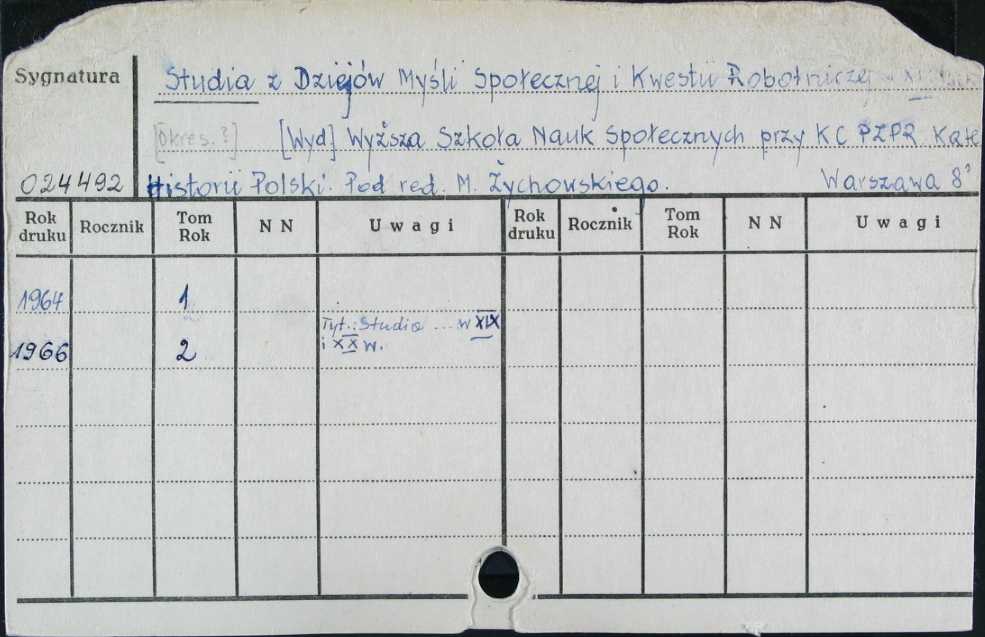 Sygnatura
Studia z Dziejów Myśli Społecznej i Kwestii Robotniczej w XI
[Okres.?] [Wyd] Wyższa Szkoła Nauk Społecznych przy KC PZPR Kate
024492 Historii Polski. Pod red. M. Żychowskiego. Warszawa 8°
Rok druku Rocznik Tom Rok NN Uwagi Rok druku Rocznik Tom Rok NN Uwagi
1964 1
1966 2 Tyt.: Studia ... w XIX
i XX w.